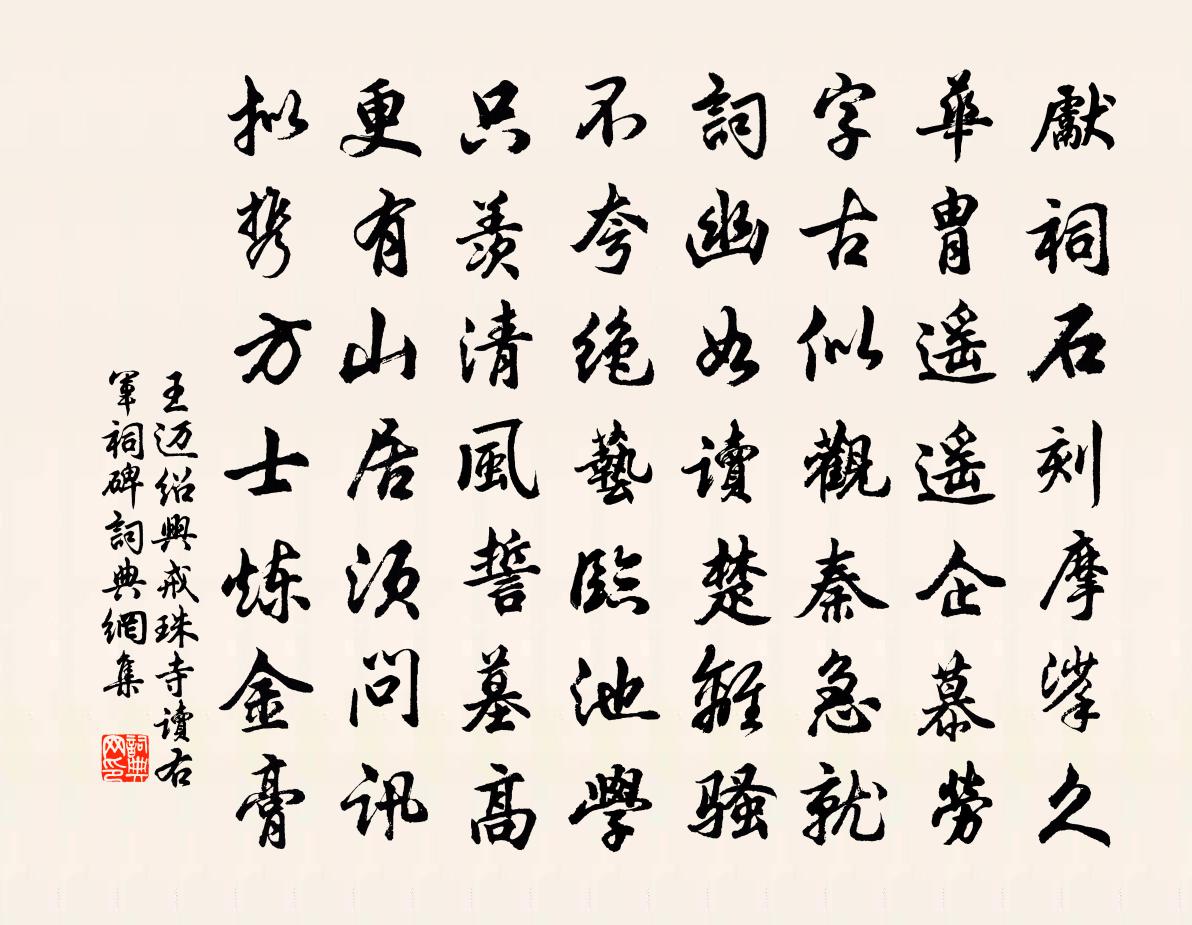 獻祠石刻摩挲久
華胄遥遥企慕勞
字古似觀秦急就
詞幽如讀楚離騷
不夸绝藝臨池學
只羨清風誓墓高
更有山居須問訊
拟携方士炼金膏
王迈绍興戒珠寺讀右
軍祠碑詞典網集
詞典
网印